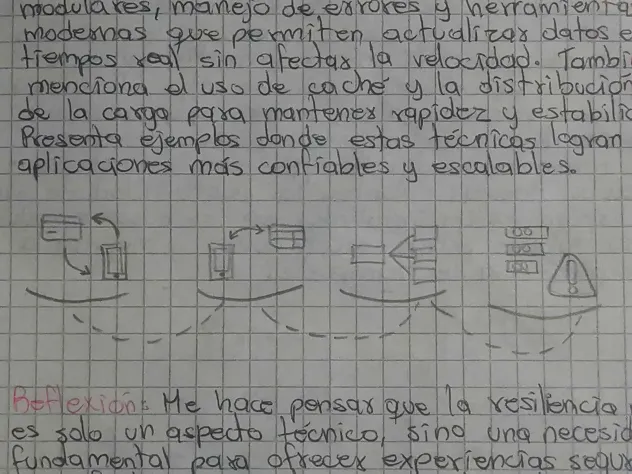 modulares, manejo de errores y herramienta
modernas que permiten actualizar datos e
tiempos real sin afectar la velocidad. Tambi
menciona el uso de caché y la distribución
de la carga para mantener rapidez y estabilid
Presenta ejemplos donde estas técnicas logran
aplicaciones más confiables y escalables.
Reflexión: Me hace pensar que la resiliencia
es solo un aspecto técnico, sino una necesid
fundamental para ofrecer experiencias segur